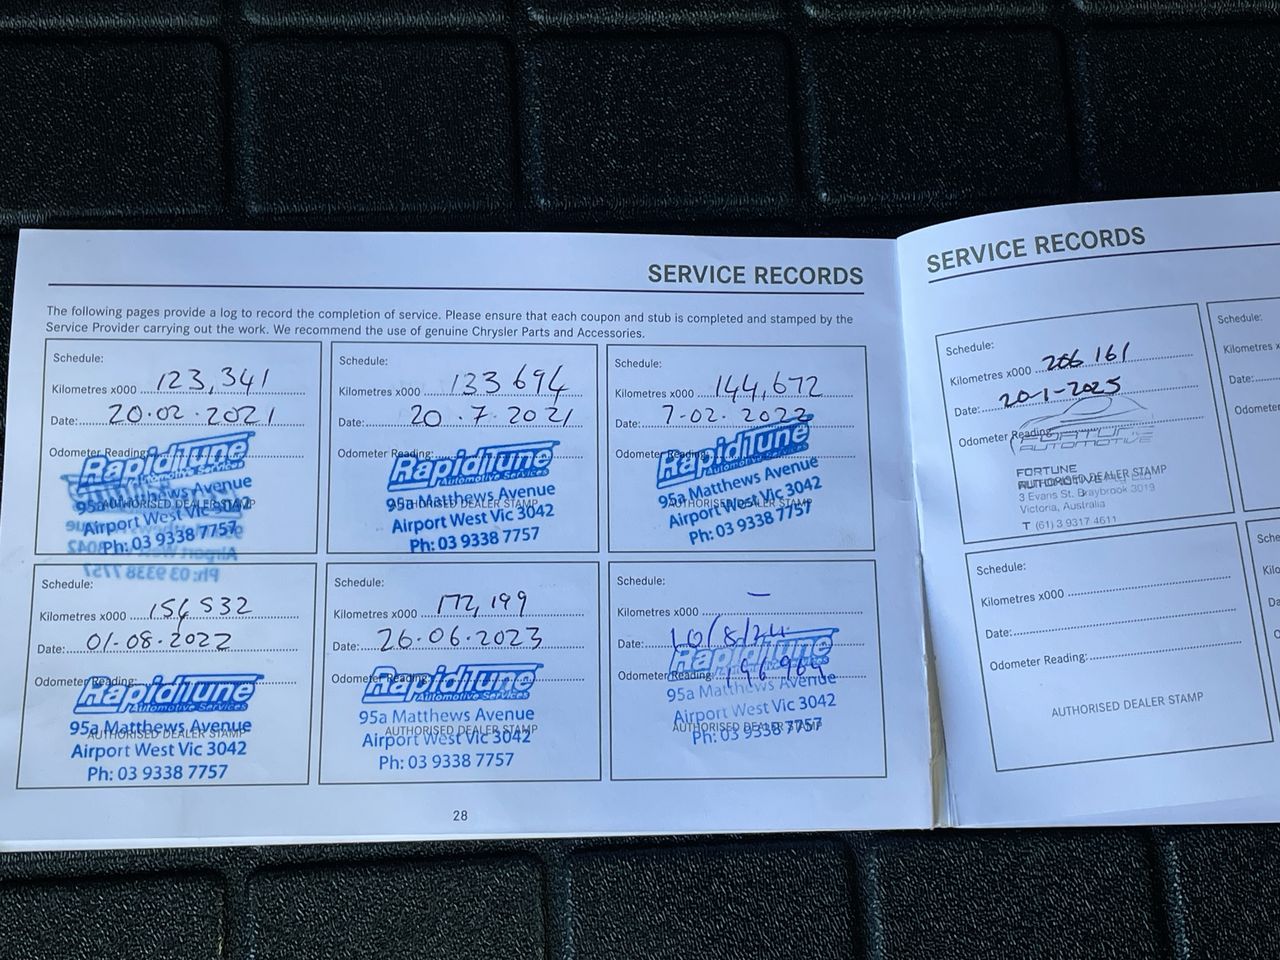 SERVICE RECORDS
The following pages provide a log to record the completion of service. Please ensure that each coupon and stub is completed and stamped by the
Service Provider carrying out the work. We recommend the use of genuine Chrysler Parts and Accessories.
Schedule:
Kilometres x000 123,341
Date: 20.02.2021
Odometer Reading:
RapidTune
Automotive Services
95a Matthews Avenue
AUTHORISED DEALER STAMP
Airport West Vic 3042
Ph: 03 9338 7757
Schedule:
Kilometres x000 133 694
Date: 20.7.2021
Odometer Reading:
RapidTune
Automotive Services
95a Matthews Avenue
AUTHORISED DEALER STAMP
Airport West Vic 3042
Ph: 03 9338 7757
Schedule:
Kilometres x000 144,672
Date: 7-02.2022
Odometer Reading:
RapidTune
Automotive Services
95a Matthews Avenue
AUTHORISED DEALER STAMP
Airport West Vic 3042
Ph: 03 9338 7757
Schedule:
Kilometres x000 156 532
Date: 01-08.2022
Odometer Reading:
RapidTune
Automotive Services
95a Matthews Avenue
AUTHORISED DEALER STAMP
Airport West Vic 3042
Ph: 03 9338 7757
Schedule:
Kilometres x000 172,199
Date: 26.06.2023
Odometer Reading:
RapidTune
Automotive Services
95a Matthews Avenue
AUTHORISED DEALER STAMP
Airport West Vic 3042
Ph: 03 9338 7757
Schedule:
Kilometres x000 —
Date: 10/8/24
Odometer Reading:
RapidTune
Automotive Services
95a Matthews Avenue
Airport West Vic 3042
AUTHORISED DEALER STAMP
Ph: 03 9338 7757
28
SERVICE RECORDS
Schedule:
Kilometres x000 206 161
Date: 20-1-2025
Odometer Reading:
FORTUNE
AUTOMOTIVE
FORTUNE
AUTOMOTIVE
AUTHORISED DEALER STAMP
3 Evans St, Braybrook 3019
Victoria, Australia
T (61) 3 9317 4611
Schedule:
Kilometres x000
Date:
Odometer Reading:
AUTHORISED DEALER STAMP
Schedule:
Kilometres x
Date:
Odometer